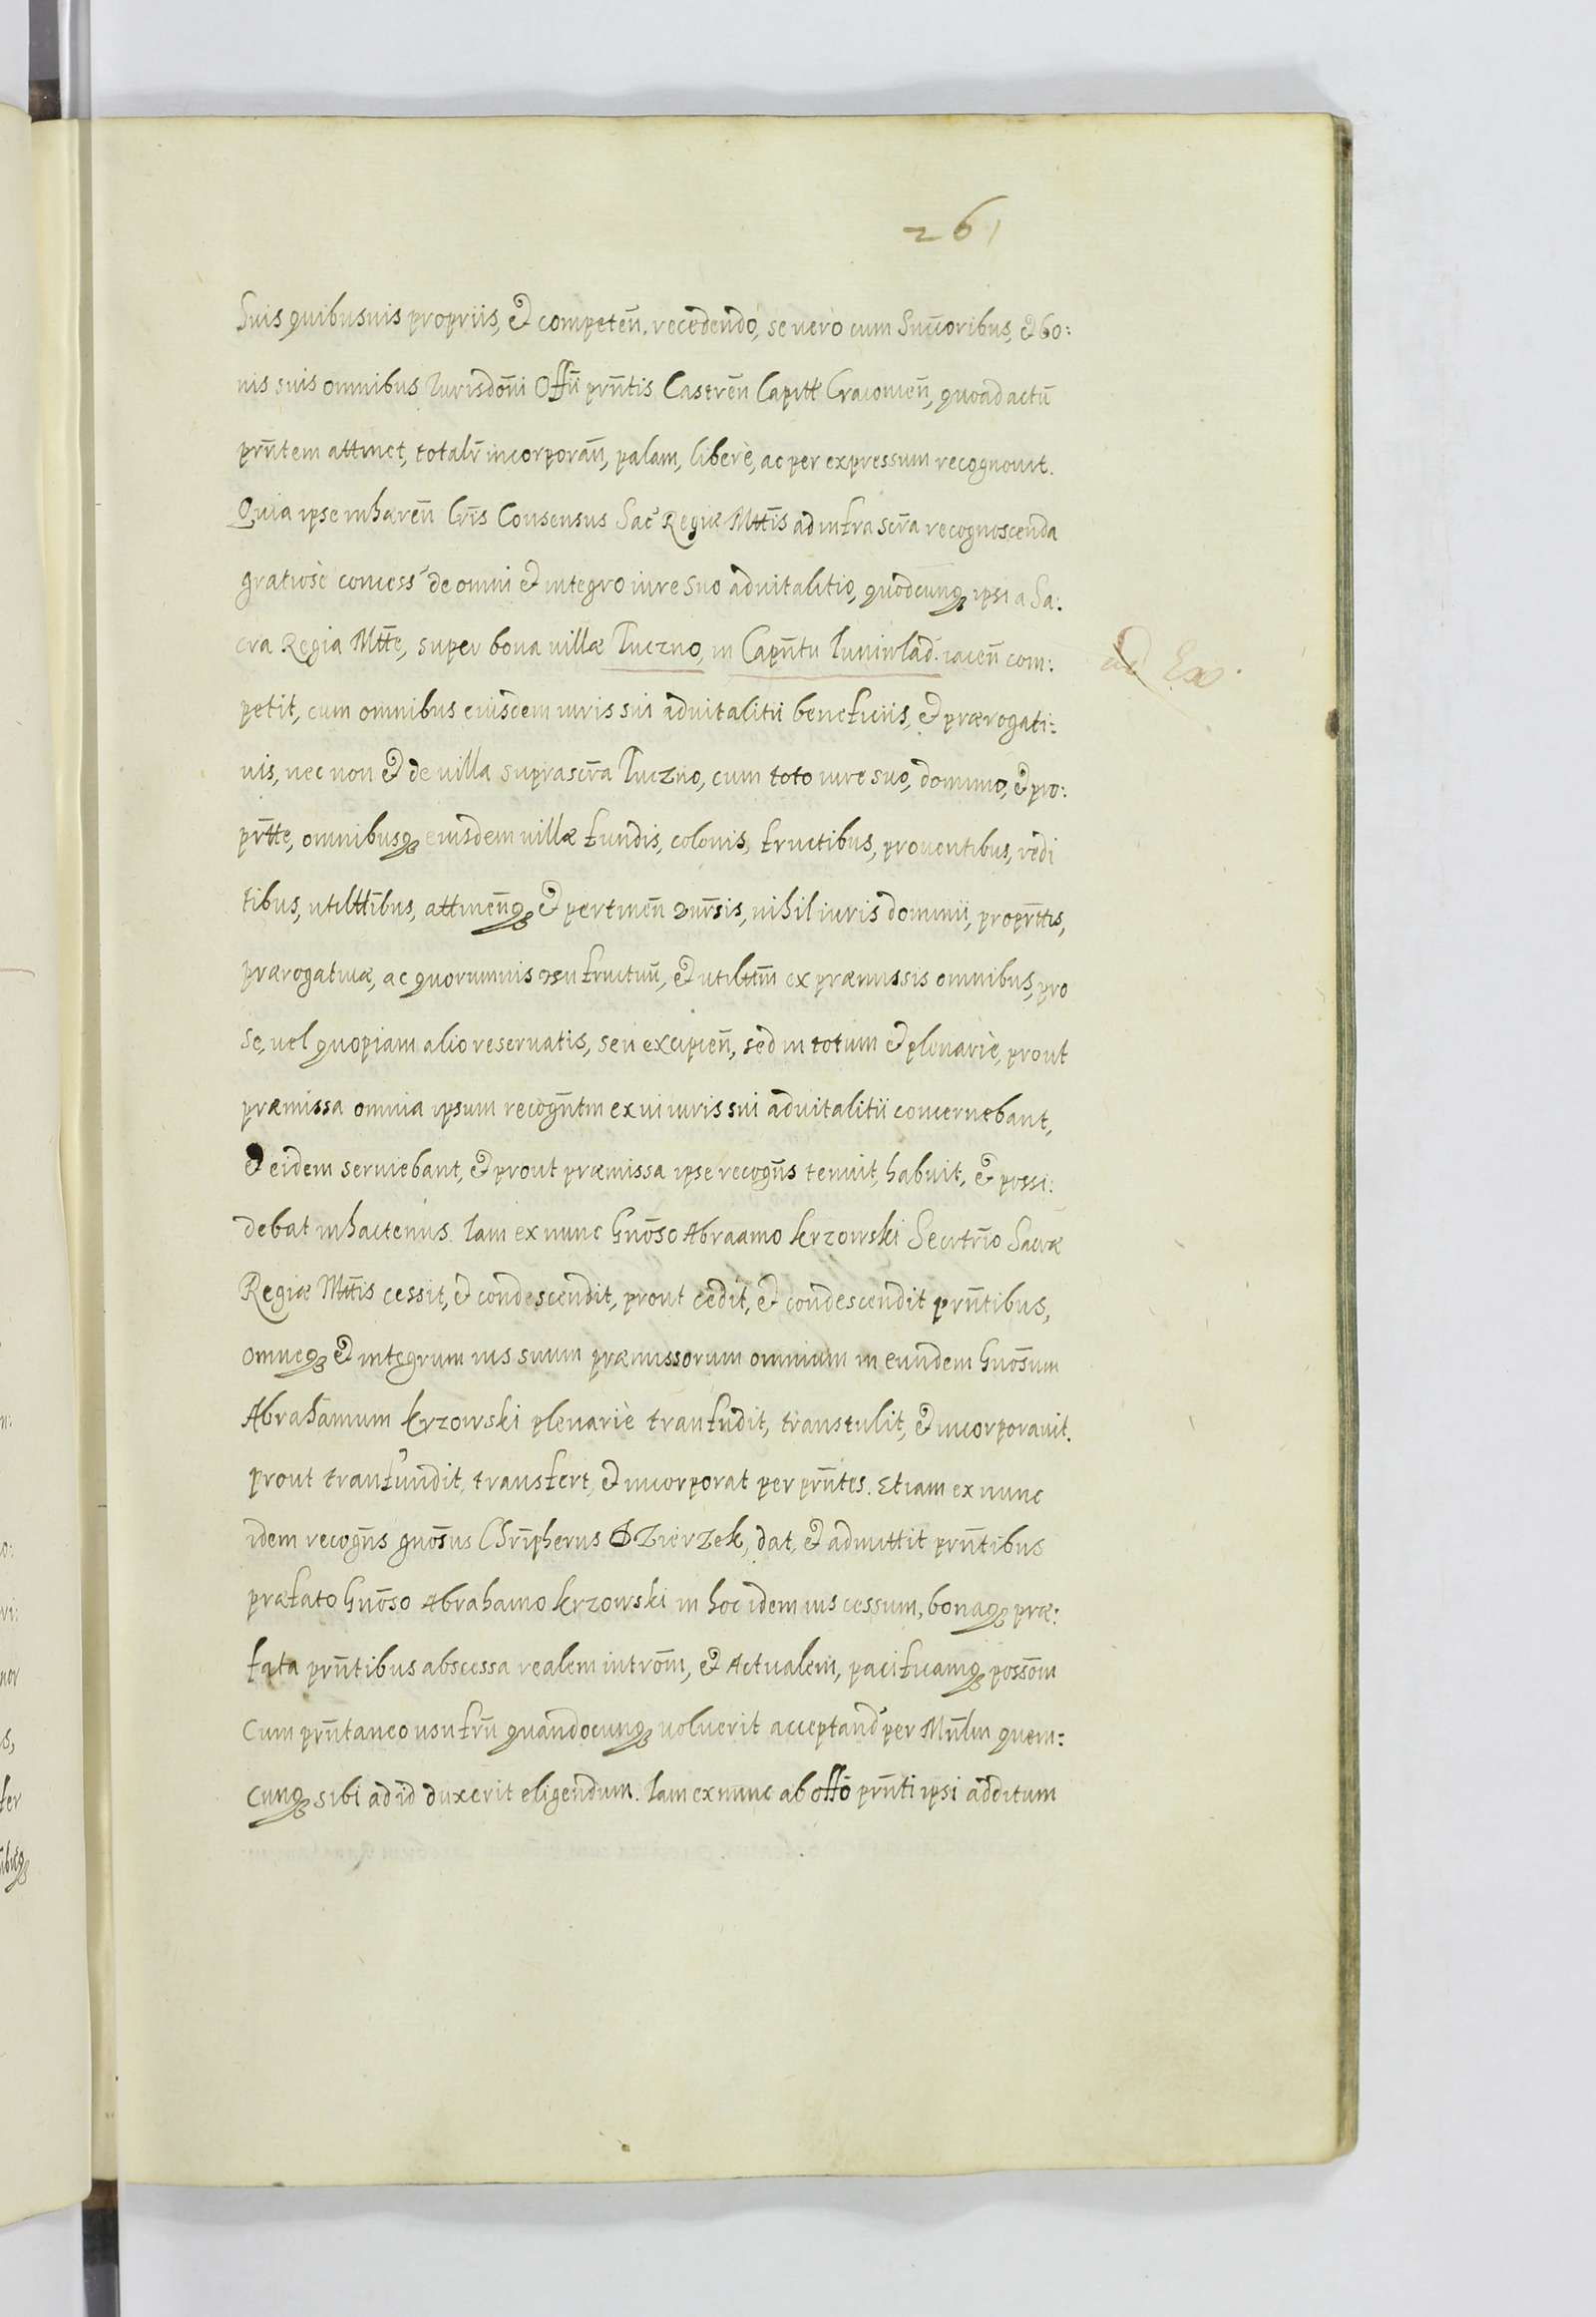 261
Suis quibusuis propriis, et competen̄. recedendo, se vero cum Succoribus, et bo:
nis suis omnibus Iurisdōni Offii prn̄tis Castren̄ Capitt Cracouien̄, quoad actū
prn̄tem attinet, totalr̄ incorporan̄, palam, liberè, ac per expressum recognouit.
Quia ipse inhæren̄ Lrīs Consensus Sac Regiæ Mttīs ad infra scrā recognoscenda
gratiosè concess de omni et integro iure suo aduitalitio, quodcunq ipsi a Sa:
cra Regia Mttē, super bona villæ Tuczno, in Capn̄tu Iuniwlad. iacen̄ com:
petit, cum omnibus eiuscem iuris sui aduitalitii beneficiis, et prærogati:
uis, nec non et de villa suprascrā Tuczno, cum toto iure suo, dominio, et pro:
pr̄tte, omnibusq eiusdem villæ fundis, colonis, fructibus, prouentibus, redi
tibus, utilttībus, attinen̄q et pertinen̄ vnr̄sis, nihil iuris dominii, propr̄ttis,
prærogatiuæ, ac quorumuis vsufructuū, et utilittm̄ ex præmissis omnibus, pro
se, vel quopiam alio reseruatis, seu excipien̄, sed in totum et plenariè, prout
præmissa omnia ipsum recogn̄tm ex vi iuris sui aduitalitii concernebant,
et eidem seruiebant, et prout præmissa ipse recogn̄s tenuit, habuit, et possi:
debat inhactenus. Iam ex nunc Gnōso Abraamo Krzowski Secrtrīo Sacræ
Regiæ Mttīs cessit, et condescendit, prout cedit, et condescendit prn̄tibus,
omneq et integrum ius suum præmissorum omnium in eundem Gnōsum
Abrahamum Krzowski plenariè tranfudit, transtulit, et incorporauit.
prout tranfundit, transfert, et incorporat per prn̄tes. Etiam ex nunc
idem recogn̄s gnōsus Chrīpherus Dzierzek, dat, et admittit prn̄tibus
præfato Gnōso Abrahamo Krzowski in hoc idem ius cessum, bonaq præ:
fata prn̄tibus abscessa realem introm̄, et Actualem, pacificamq possōm
Cum prn̄taneo usufrū quandocunq voluerit acceptand per Mn̄lm quem:
cunq sibi ad id duxerit eligendum. Iam ex nunc ab offō prn̄ti ipsi additum